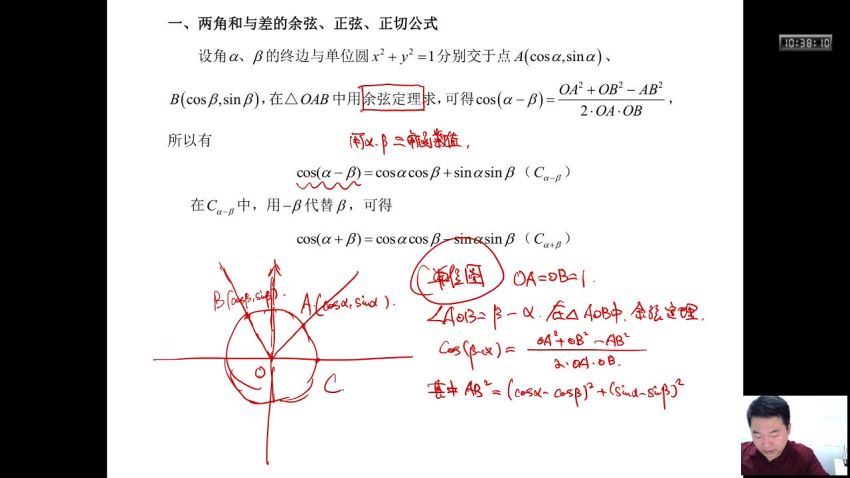 一、两角和与差的余弦、正弦、正切公式
10:38:10
设角α、β的终边与单位圆 x² + y² =1分别交于点 A(cosα,sinα)、
B(cosβ,sinβ),在△OAB中用余弦定理求,可得cos(α − β)= (OA² + OB² − AB²)/(2·OA·OB),
所以有
用α.β三角函数值,
cos(α − β) = cosαcosβ + sinαsinβ(C_{α−β})
在C_{α−β}中,用−β代替β,可得
cos(α + β) = cosαcosβ − sinαsinβ(C_{α+β})
单位圆 OA=OB=1.
B(cosβ,sinβ). A(cosα,sinα).
∠AOB= β − α. 在△AOB中, 余弦定理.
cos(β-α) = (OA²+OB²−AB²)/(2·OA·OB.)
O C
其中 AB² = (cosα− cosβ)² + (sinα−sinβ)²